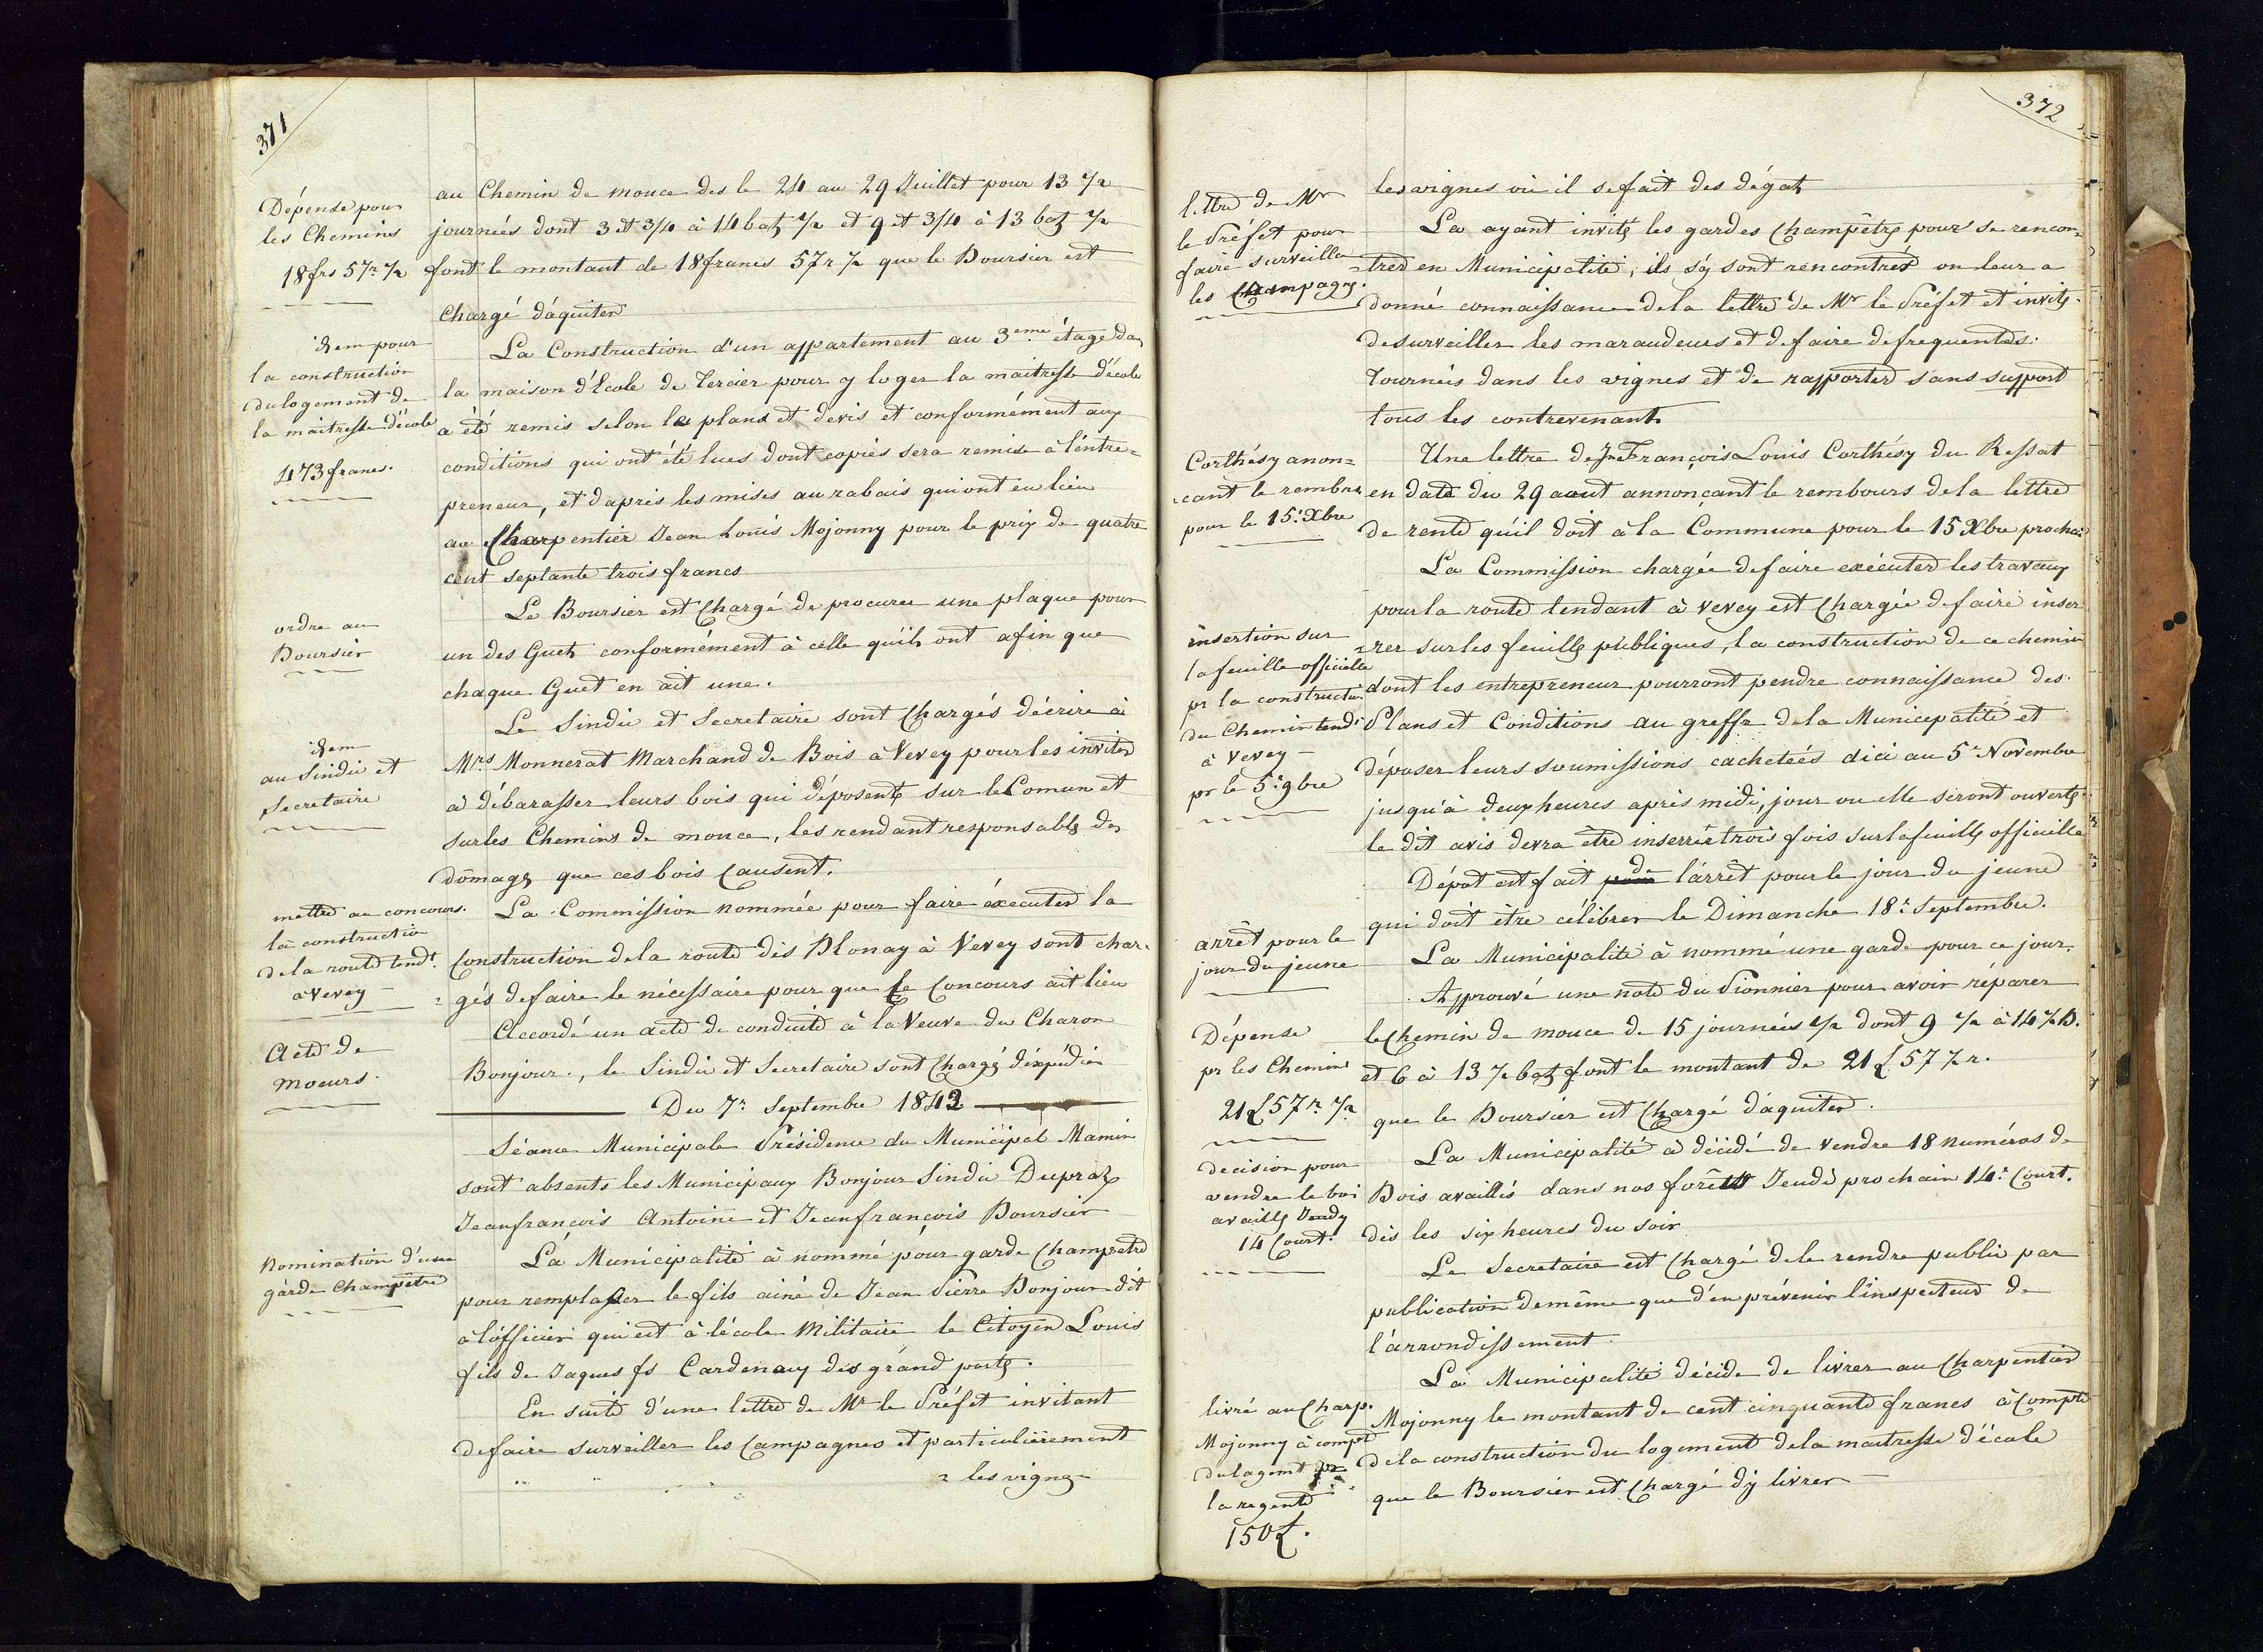 371
Dépense pour
les Chemins
18 frs 57 r ½
idem pour
la construction
du logement de
la maitresse d'école
473 francs.
ordre au
Boursier
idem
au Sindic et
Secretaire
mettre au concours.
la construction
de la route tendt.
à Vevey
Acte de
moeurs.
Nomination d'une
garde Champêtre
au Chemin de mouce des le 24 au 29 Juillet pour 13 ½
journées dont 3 et 3/4 à 14 batz ½ et 9 et 3/4 à 13 batz ½
font le montant de 18 francs 57 r ½ que le Boursier est
Chargé d'aquiter
La Construction d'un appartement au 3eme étage da
la maison d'École de Tercier pour y loger la maitresse d'école
a été remis selon les plans et devis et conformément aux
conditions qui ont été lues dont copies sera remise à l'entre=
preneur, et d'après les mises au rabais qui ont eu lieu
au Charpentier Jean Louis Mojonny pour le prix de quatre
cent septante trois francs
Le Boursier est Chargé de procurer une plaque pour
un des Guets conformément à celle qu'ils ont afin que
chaque Guet en ait une.
Le Sindic et Secretaire sont Chargés d'écrire à
Mrs Monnerat Marchand de Bois à Vevey pour les inviter
à débarasser leurs bois qui déposente sur le Comun et
sur les Chemins de mouce, les rendant responsables des
dômages que ces bois Causent.
La Commission nommée pour faire éxecuter la
Construction de la route dès Blonay à Vevey sont char=
=gés de faire le nécessaire pour que le Concours ait lieu
Accordé un acte de conduite à la Veuve du Charon
Bonjour., le Sindic et Secretaire sont Chargés d'éxpédier
Du 7r. Septembre 1842
Séance Municipale Présidence du Municipal Mamin
sont absents les Municipaux Bonjour Sindic Dupraz
Jeanfrançois Antoine et Jeanfrançois Boursier
La Municipalité à nommé pour garde Champetre
pour remplacer le fils ainé de Jean Pierre Bonjour dit
à l'officier qui est à l'école Militaire le Citoyen Louis
fils de Jaques fs Cardenaux des grand portes.
En suite d'une lettre de Mr le Préfet invitant
de faire surveiller les Campagnes et particulièrement
= les vignes
372
lettre de Mr
le Préfet pour
faire surveille
les Campagns.
Corthésy anon=
=cant le rembrs
pour le 15r. Xbre
insertion sur
la feuille officielle
pr la constructn
du Chemin tendt
à Vevey
pr le 5r. 9bre
arrêt pour le
jour du jeune
Dépense
pr les Chemins
21 £ 57 r. ½
decision pour
vendre le boi
availlés Jeudy
14 Court.
livré au Charp.
Mojonny à compte
du logemt pr
la regente
150 £.
les vignes où il se fait des dégats
La ayant invités les gardes Champêtres pour se rencon=
=trer en Municipalité, ils s'y sont rencontrés on leur a
donné connaissance de la lettre de Mr le Préfet et invités
de surveiller les maraudeurs et de faire de frequentes
tournées dans les vignes et de rapporter sans support
tous les contrevenants
Une lettre de Jn François Louis Corthésy du Ressat
en date du 29 aout annonçant le rembours de la lettre
de rente qu'il doit à la Commune pour le 15 Xbre prochai
La Commission chargée de faire exécuter les travaux
pour la route tendant à Vevey est Chargée de faire inser
=rer sur les feuilles publiques, la construction de ce chemin
dont les entrepreneur pourront pendre connaissance des
Plans et Conditions au greffe de la Municipalité et
déposer leurs soumissions cachetées d'ici au 5r Novembre
jusqu'à deux heures après midi, jour ou elle seront ouvertes.
le dit avis devra être inserrér trois fois sur la feuille officielle
Dépot est fait de l'arrêt pour le jour du jeune
qui doit être célébrer le Dimanche 18r. Septembre.
La Municipalité à nommé une garde pour ce jour.
Approuvé une note du Pionnier pour avoir réparer
le Chemin de mouce de 15 journées ½ dont 9 ½ à 14 ½ B.
et 6 à 13 ½ batz font le montant de 21 £ 57 ½ r.
que le Boursier est Chargé d'aquiter.
La Municipalité à décidé de vendre 18 numéros de
Bois availlés dans nos forêtt Jeudi prochain 14r. Court.
dès les six heures du soir
Le Secretaire est Chargé de le rendre public par
publication de même que d'en prévenir l'inspecteur de
l'arrondissement.
La Municipalité décide de livrer au Charpentier
Mojonny le montant de cent cinquante francs à Compte
de la construction du logement de la maitresse d'école
que le Boursier est Chargé d'y livrer